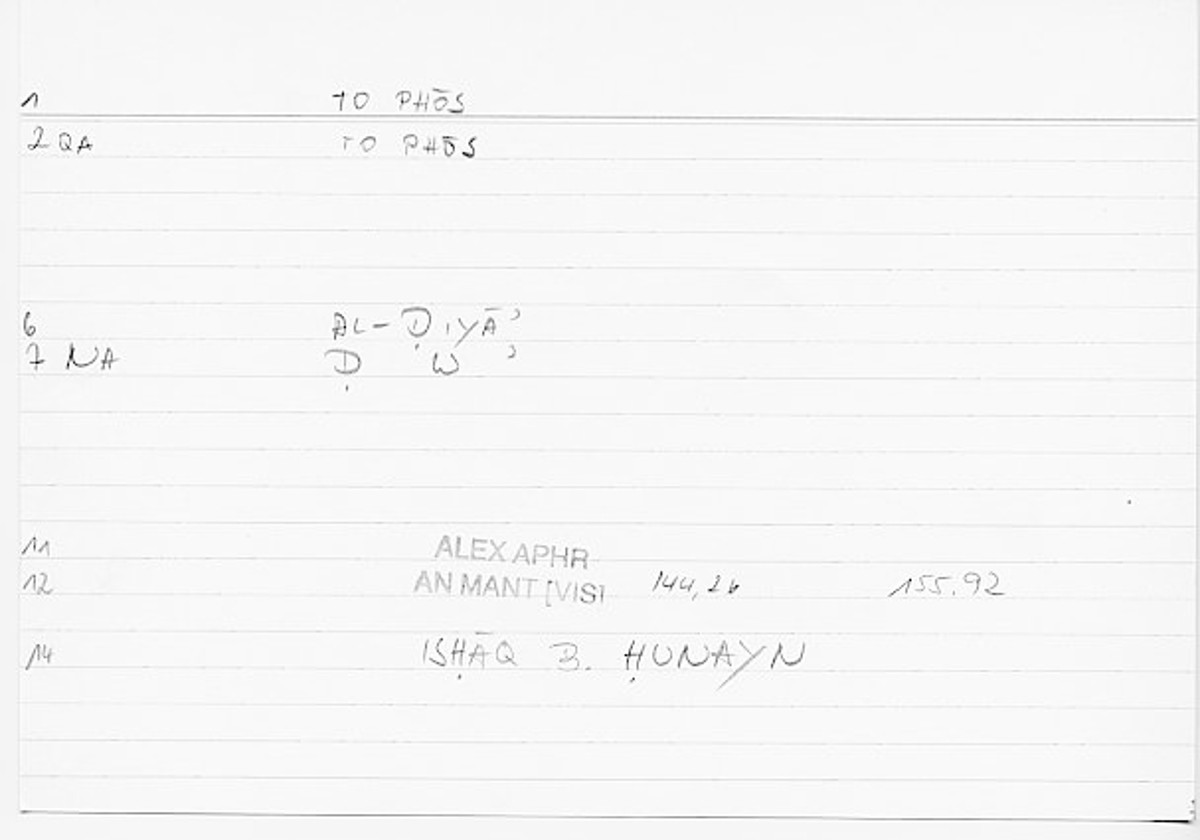 1 TO PHŌS
2 QA TO PHŌS
6 AL-ḌIYĀʾ
7 NA Ḍ W ʾ
11 ALEX APHR
12 AN MANT [VIS] 144,26 155.92
14 ISḤĀQ B. ḤUNAYN